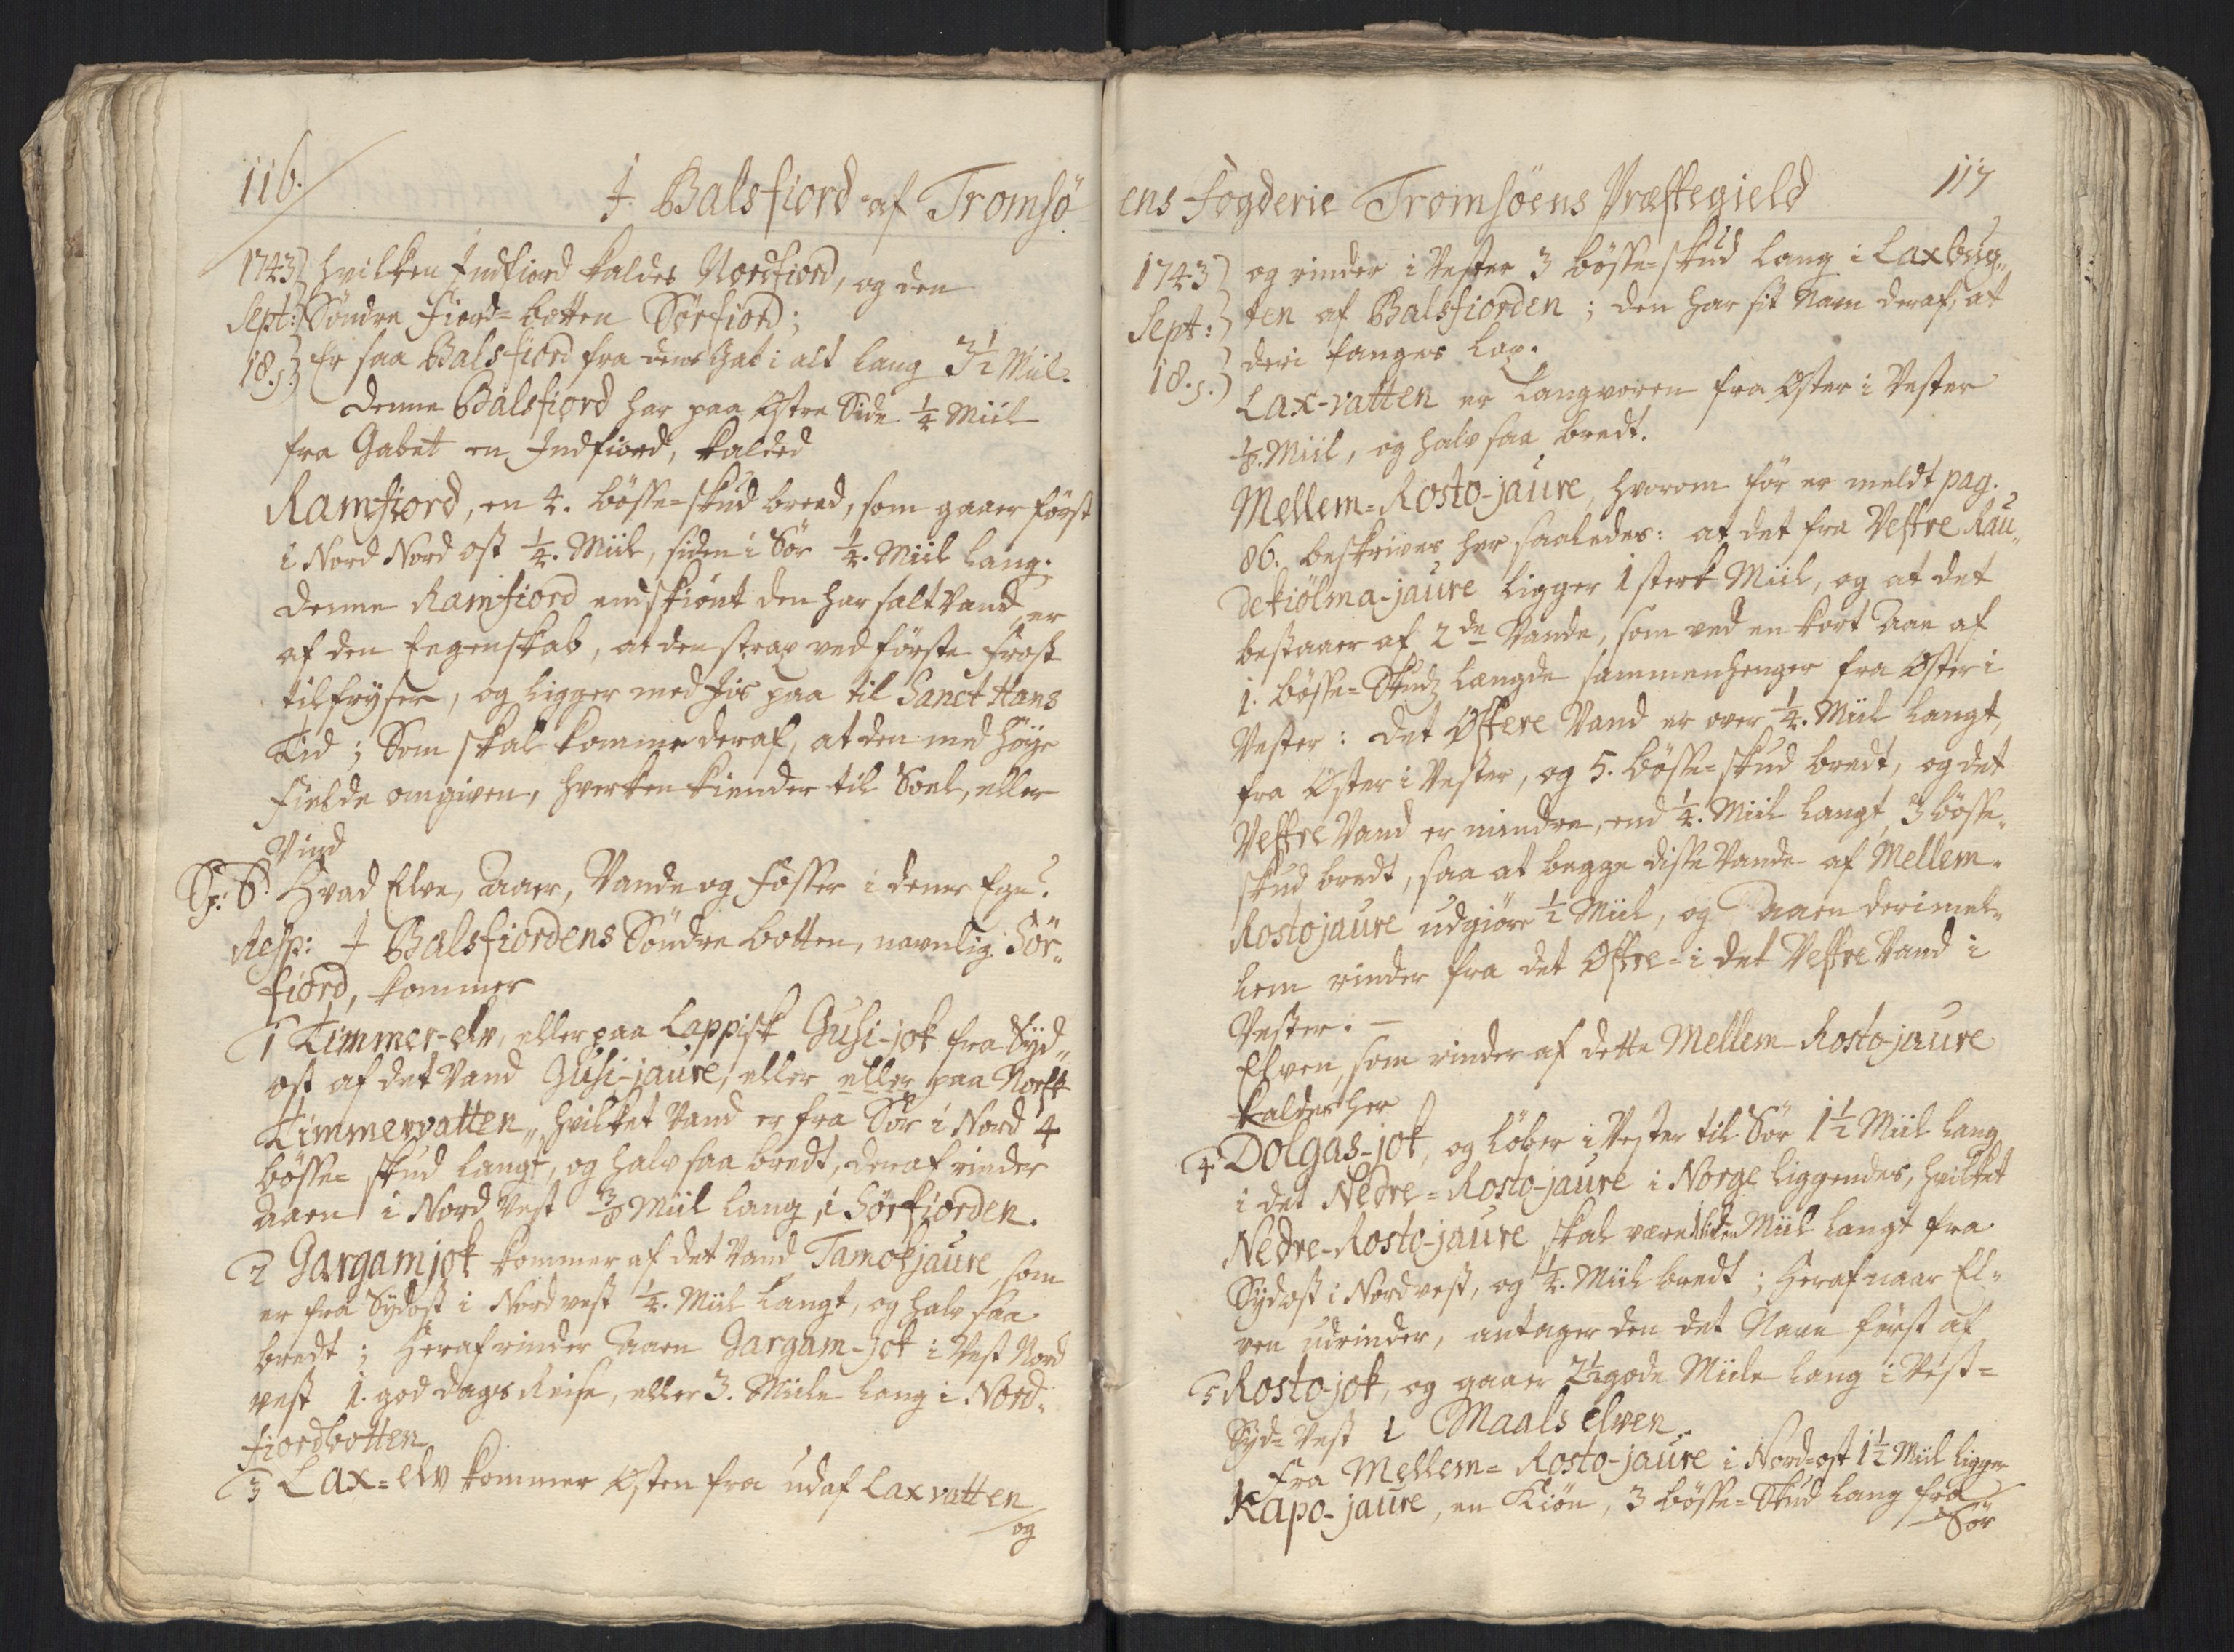 116.
I. Balsfiord af Tromsö
1743 hvilken Indfiord kaldes Nordfiord, og den
Sept: Söndre Fiord=botten Sørfiord;
18. s. Er saa Balsfiord fra dens Gab i alt lang 3½ Miil.
Denne Balsfiord har paa Østre Side ¼ Miil
fra Gabet en Indfiord, kalded
Ramfiord, en 4. bösse=skud breed, som gaaer först
i Nord Nord ost ¼. Miil, siden i Sör ¼. Miil lang.
Denne Ramfiord endskiönt den har salt Vand, er
af den Eegenskab, at den strax ved förste Frost
tilfryser, og ligger med Iis paa til Sanct Hans
Tid; Som skal komme deraf, at den med höÿe
Fielde omgiven, hverken kiender til Soel, eller
Vind
Sp: 6. Hvad Elve, Aaer, Vande og Fosser i denne Egn?
Resp: I Balsfiordens Söndre botten, navnlig Sör„
fiord, kommer
1 Timmer-elv, eller paa Lappisk Gusi-jok fra Sÿd„
ost af det Vand Gusi-jaure, eller eller paa Norsk
Timmervatten„ hvilket Vand er fra Sör i Nord 4
bösse= skud langt, og halv saa bredt, deraf rinder
Aaen i Nord Vest 3/8 Miil lang i Sörfiorden.
2 Gargamjok kommer af det Vand Tamokjaure som
er fra Sÿdost i Nordvest ¼. Miil langt, og halv saa
bredt; Heraf rinder Aaen Gargam-jok i Vest Nord
vest 1. god dags Reise, eller 3. Miile lang i Nord„
fiordbotten
3 Lax=elv kommer Østen fra ud af Laxvatten
og
ens Fogderie Tromsöens Præstegield
117
1743 og rinder i Vester 3 bösse=skud lang i Laxbug„
Sept: ten af Balsfiorden; den har sit Navn deraf, at
18. s. deri fanges Lax.
Lax-vatten er langvoren fra Øster i Vester
1/8. Miil, og halv saa bredt.
Mellem=Rosto-jaure, hvorom för er meldt pag.
86. beskrives her saaledes: at det fra Vestre Rau„
dekiölma-jaure ligger 1 sterk Miil, og at det
bestaaer af 2de Vande, som ved en kort Aae af
1. bösse=Skudz længde sammenhenger fra Øster i
Vester: det Østere Vand er over ¼. Miil langt,
fra Øster i Vester, og 5. bösse=skud bredt, og det
Vestre Vand er mindre, end ¼. Miil langt, 3 bösse„
skud bredt, saa at begge disse Vande af Mellem„
Rostojaure udgiöre ½ Miil, og Aaen derimel„
lem rinder fra det Østre= i det Vestre Vand i
Vester. —
Elven, som rinder af dette Mellem-Rosto-jaure
kaldes her
4 Dolgas-jok, og löber i Vester til Sör 1½ Miil lang
i det Nedre=Rosto-jaure i Norge liggendes, hvilket
Nedre-Rosto-jaure skal være 1 liden Miil langt fra
Sÿdost i Nordvest, og ¼. Miil bredt; Heraf naar El„
ven udrinder, antager den det Navn först af
5 Rosto-jok, og gaaer 2½ gode Miile lang i Vest=
Sÿd=Vest i Maals elven.
Fra Mellem=Rosto-jaure i Nord=ost 1½ Miil ligger
Kapo-jaure, en Kiön, 3 bösse=Skud lang fra
Sör